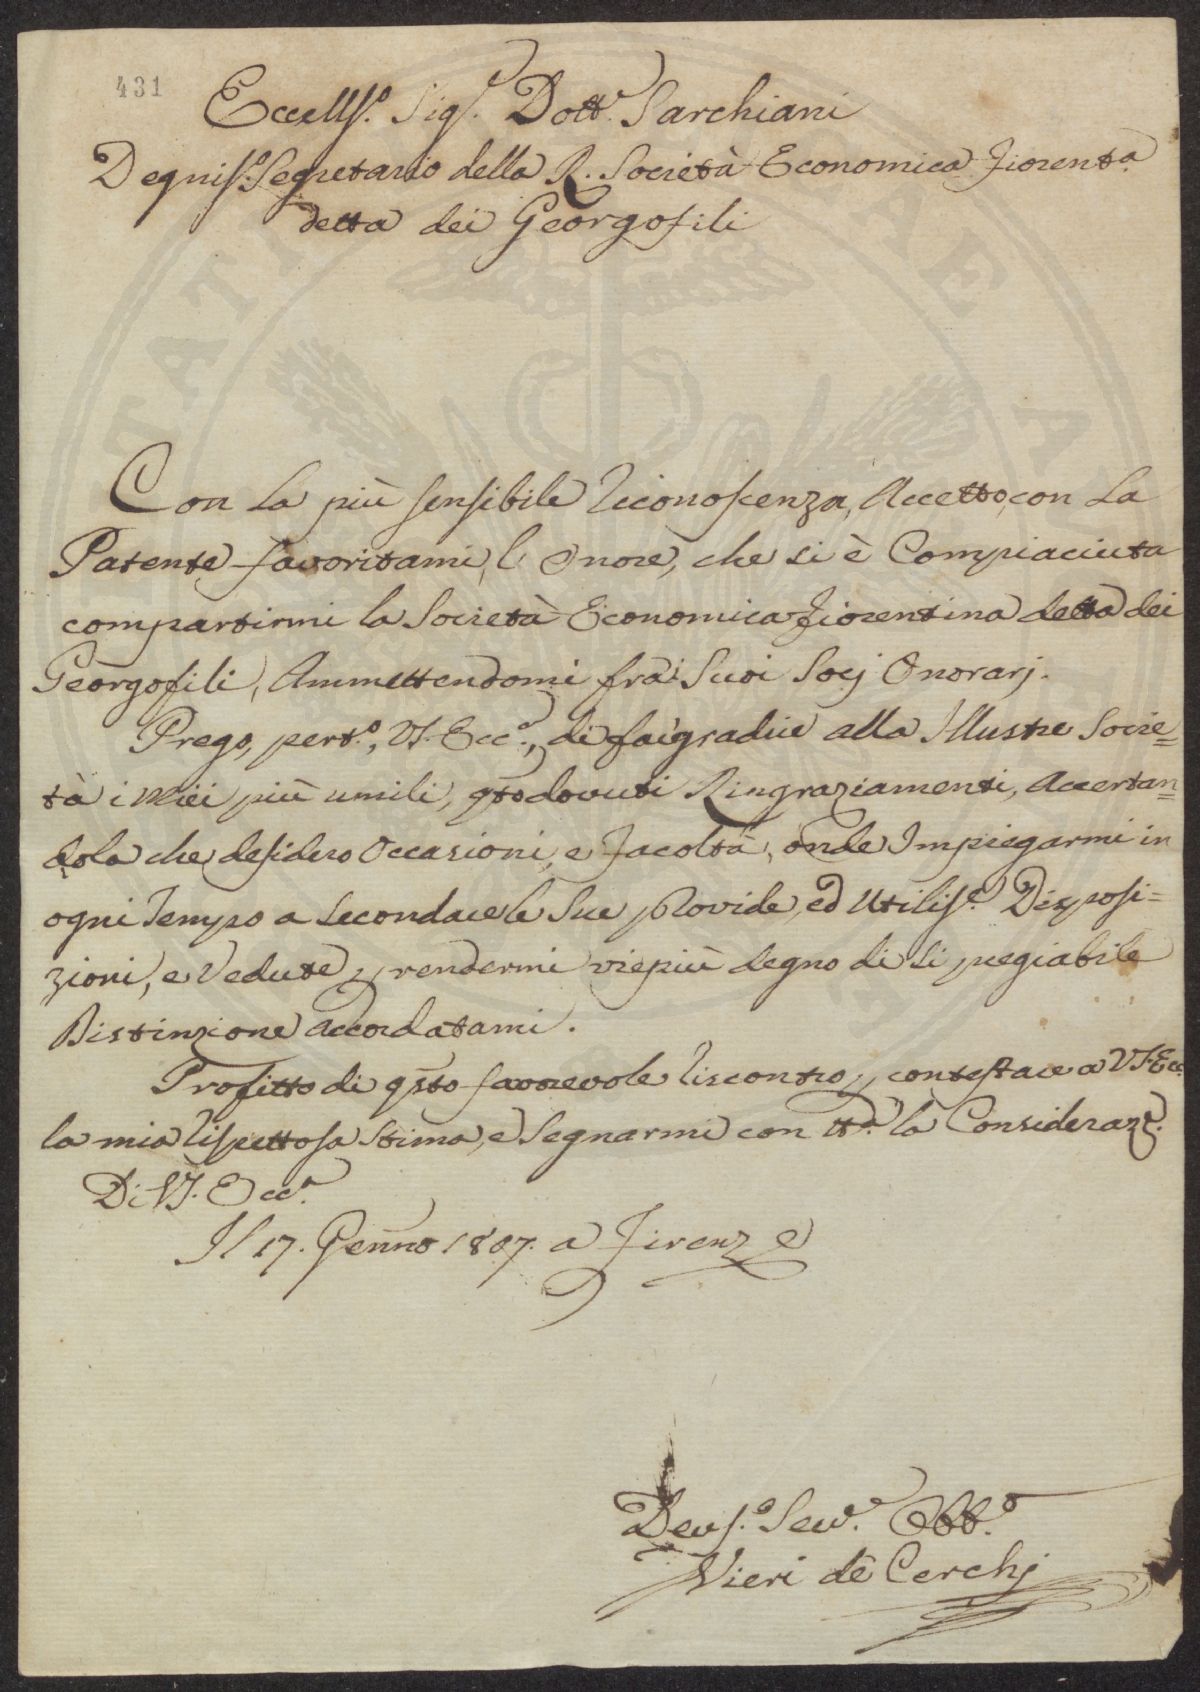 431
Eccellso. Sigr. Dotte. Sarchiani
Degniso. Segretario della R. Società Economica Fiorenta.
detta dei Georgofili
Con la più sensibile riconoscenza, Accetto, con la
Patente favoritami, l'Onore, che si è Compiaciuta
compartirmi la Società Economica Fiorentina detta dei
Georgofili, Ammettendomi frà i Suoi Socj Onorarj.
Prego, perto., VS. Ecca., di far gradire alla Illustre Socie=
tà i miei più umili, qto dovuti Ringraziamenti, Accertan=
dola che desidero Occasioni, e Facoltà, onde Impiegarmi in
ogni Tempo a secondare le Sue provide, ed Utilise. Disposi=
zioni, e Vedute, p rendermi viepiù degno di sì pregiabile
Distinzione accordatami.
Profitto di qsto favorevole riscontro, p contestare a VS. Ecc.
la mia rispettosa stima, e segnarmi con tta. la Consideraze.
Di VS. Ecca.
Il 17. Genno 1807. a Firenze
Devso. Serve. Obbo.
Vieri dè Cerchj